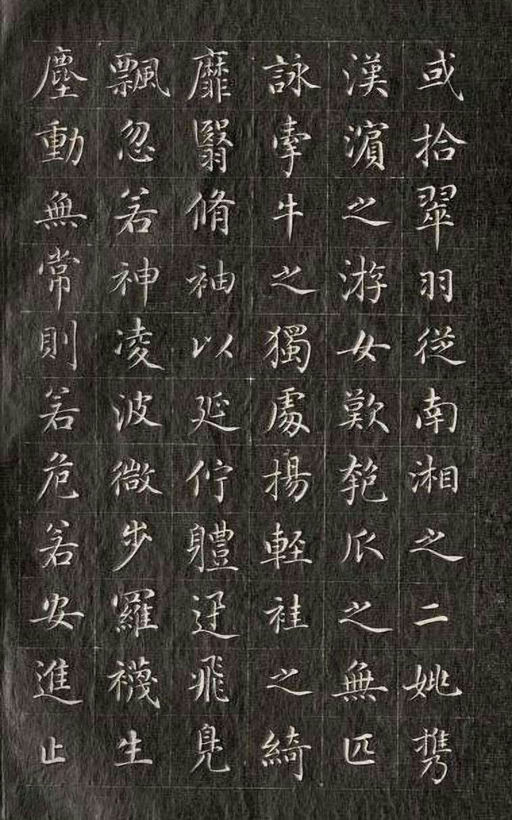 或拾翠羽從南湘之二姚攜
漢濵之游女歎匏瓜之無匹
詠牽牛之獨處揚輕袿之綺
靡翳脩袖以延佇軆迅飛鳧
飄忽若神凌波微步羅襪生
塵動無常則若危若安進止